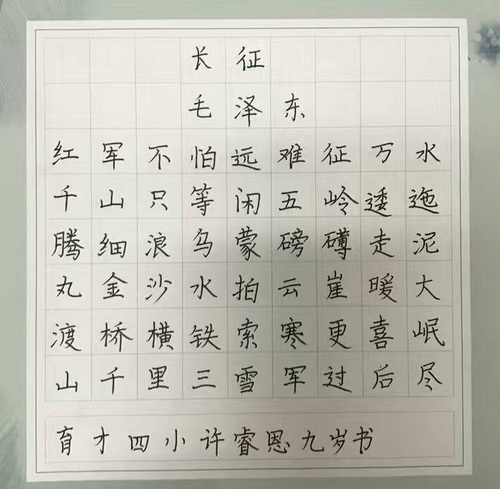 长征
毛泽东
红军不怕远难征万水
千山只等闲五岭逶迤
腾细浪乌蒙磅礴走泥
丸金沙水拍云崖暖大
渡桥横铁索寒更喜岷
山千里三雪军过后尽
育才四小许睿恩九岁书